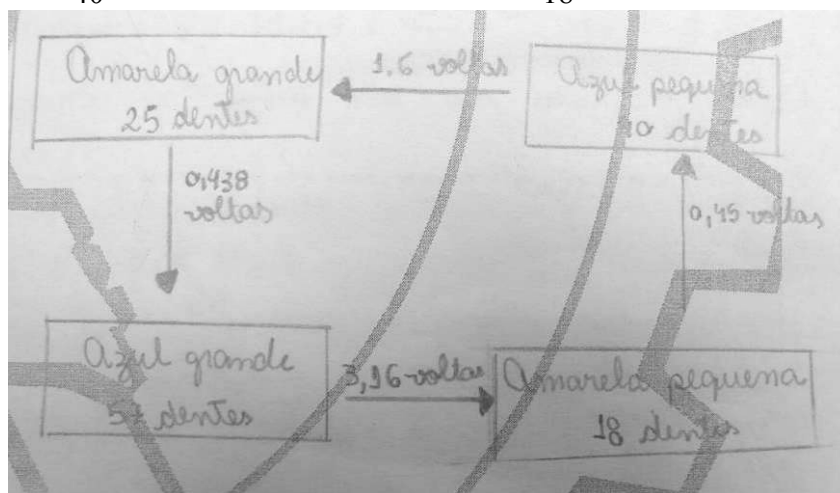 Amarela grande
25 dentes
1.6 voltas
Azul pequena
dentes
0,438
voltas
0,45 voltas
Azul grande
57 dentes
3,16 voltas
Amarela pequena
18 dentes